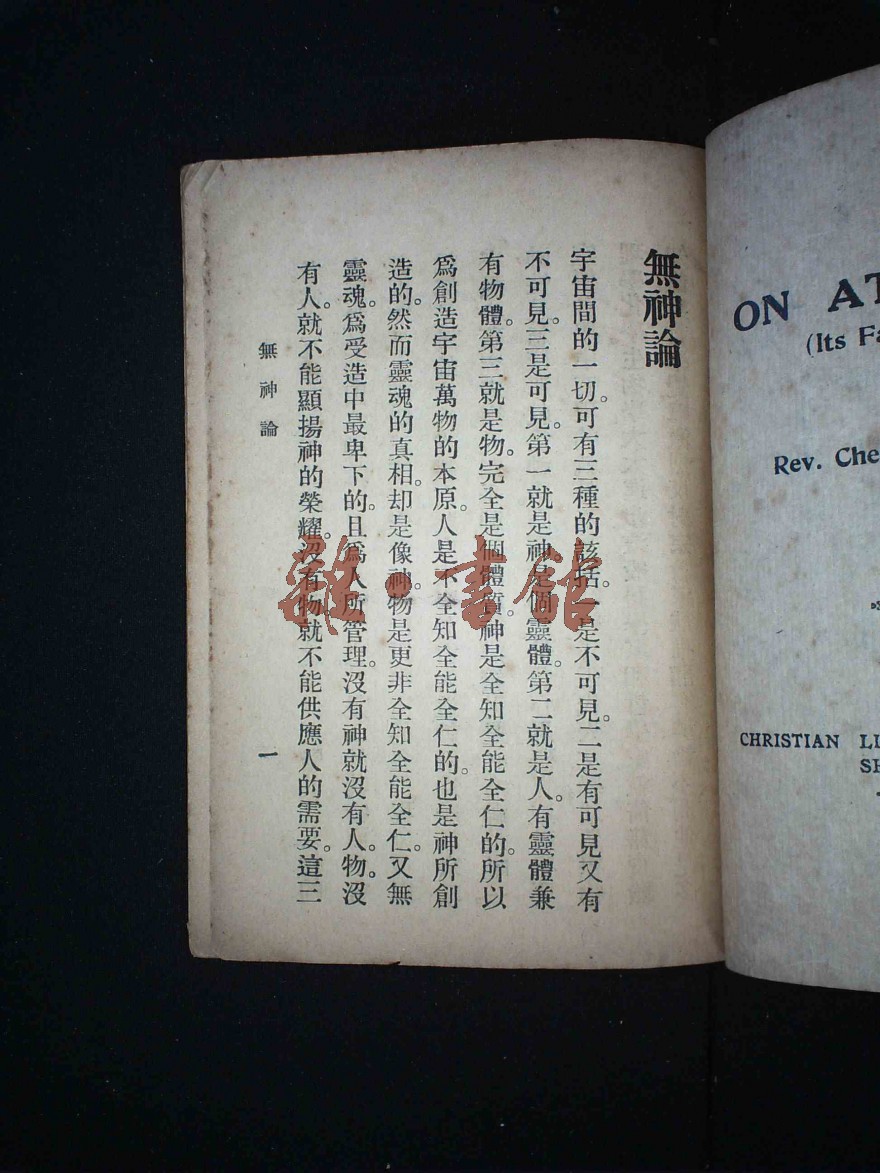 無神論
宇宙間的一切。可有三種的該括。一是不可見。二是有可見又有
不可見。三是可見。第一就是神。是個靈體。第二就是人。有靈體兼
有物體。第三就是物。完全是個體質。神是全知全能全仁的。所以
爲創造宇宙萬物的本原。人是不全知全能全仁的。也是神所創
造的。然而靈魂的真相。却是像神。物是更非全知全能全仁。又無
靈魂。爲受造中最卑下的。且爲人所管理。沒有神就沒有人。物。沒
有人。就不能顯揚神的榮耀。沒有物。就不能供應人的需要。這三
無神論
一
ON AT
(Its Fa
Rev. Che
CHRISTIAN LI
SH
雜·書館